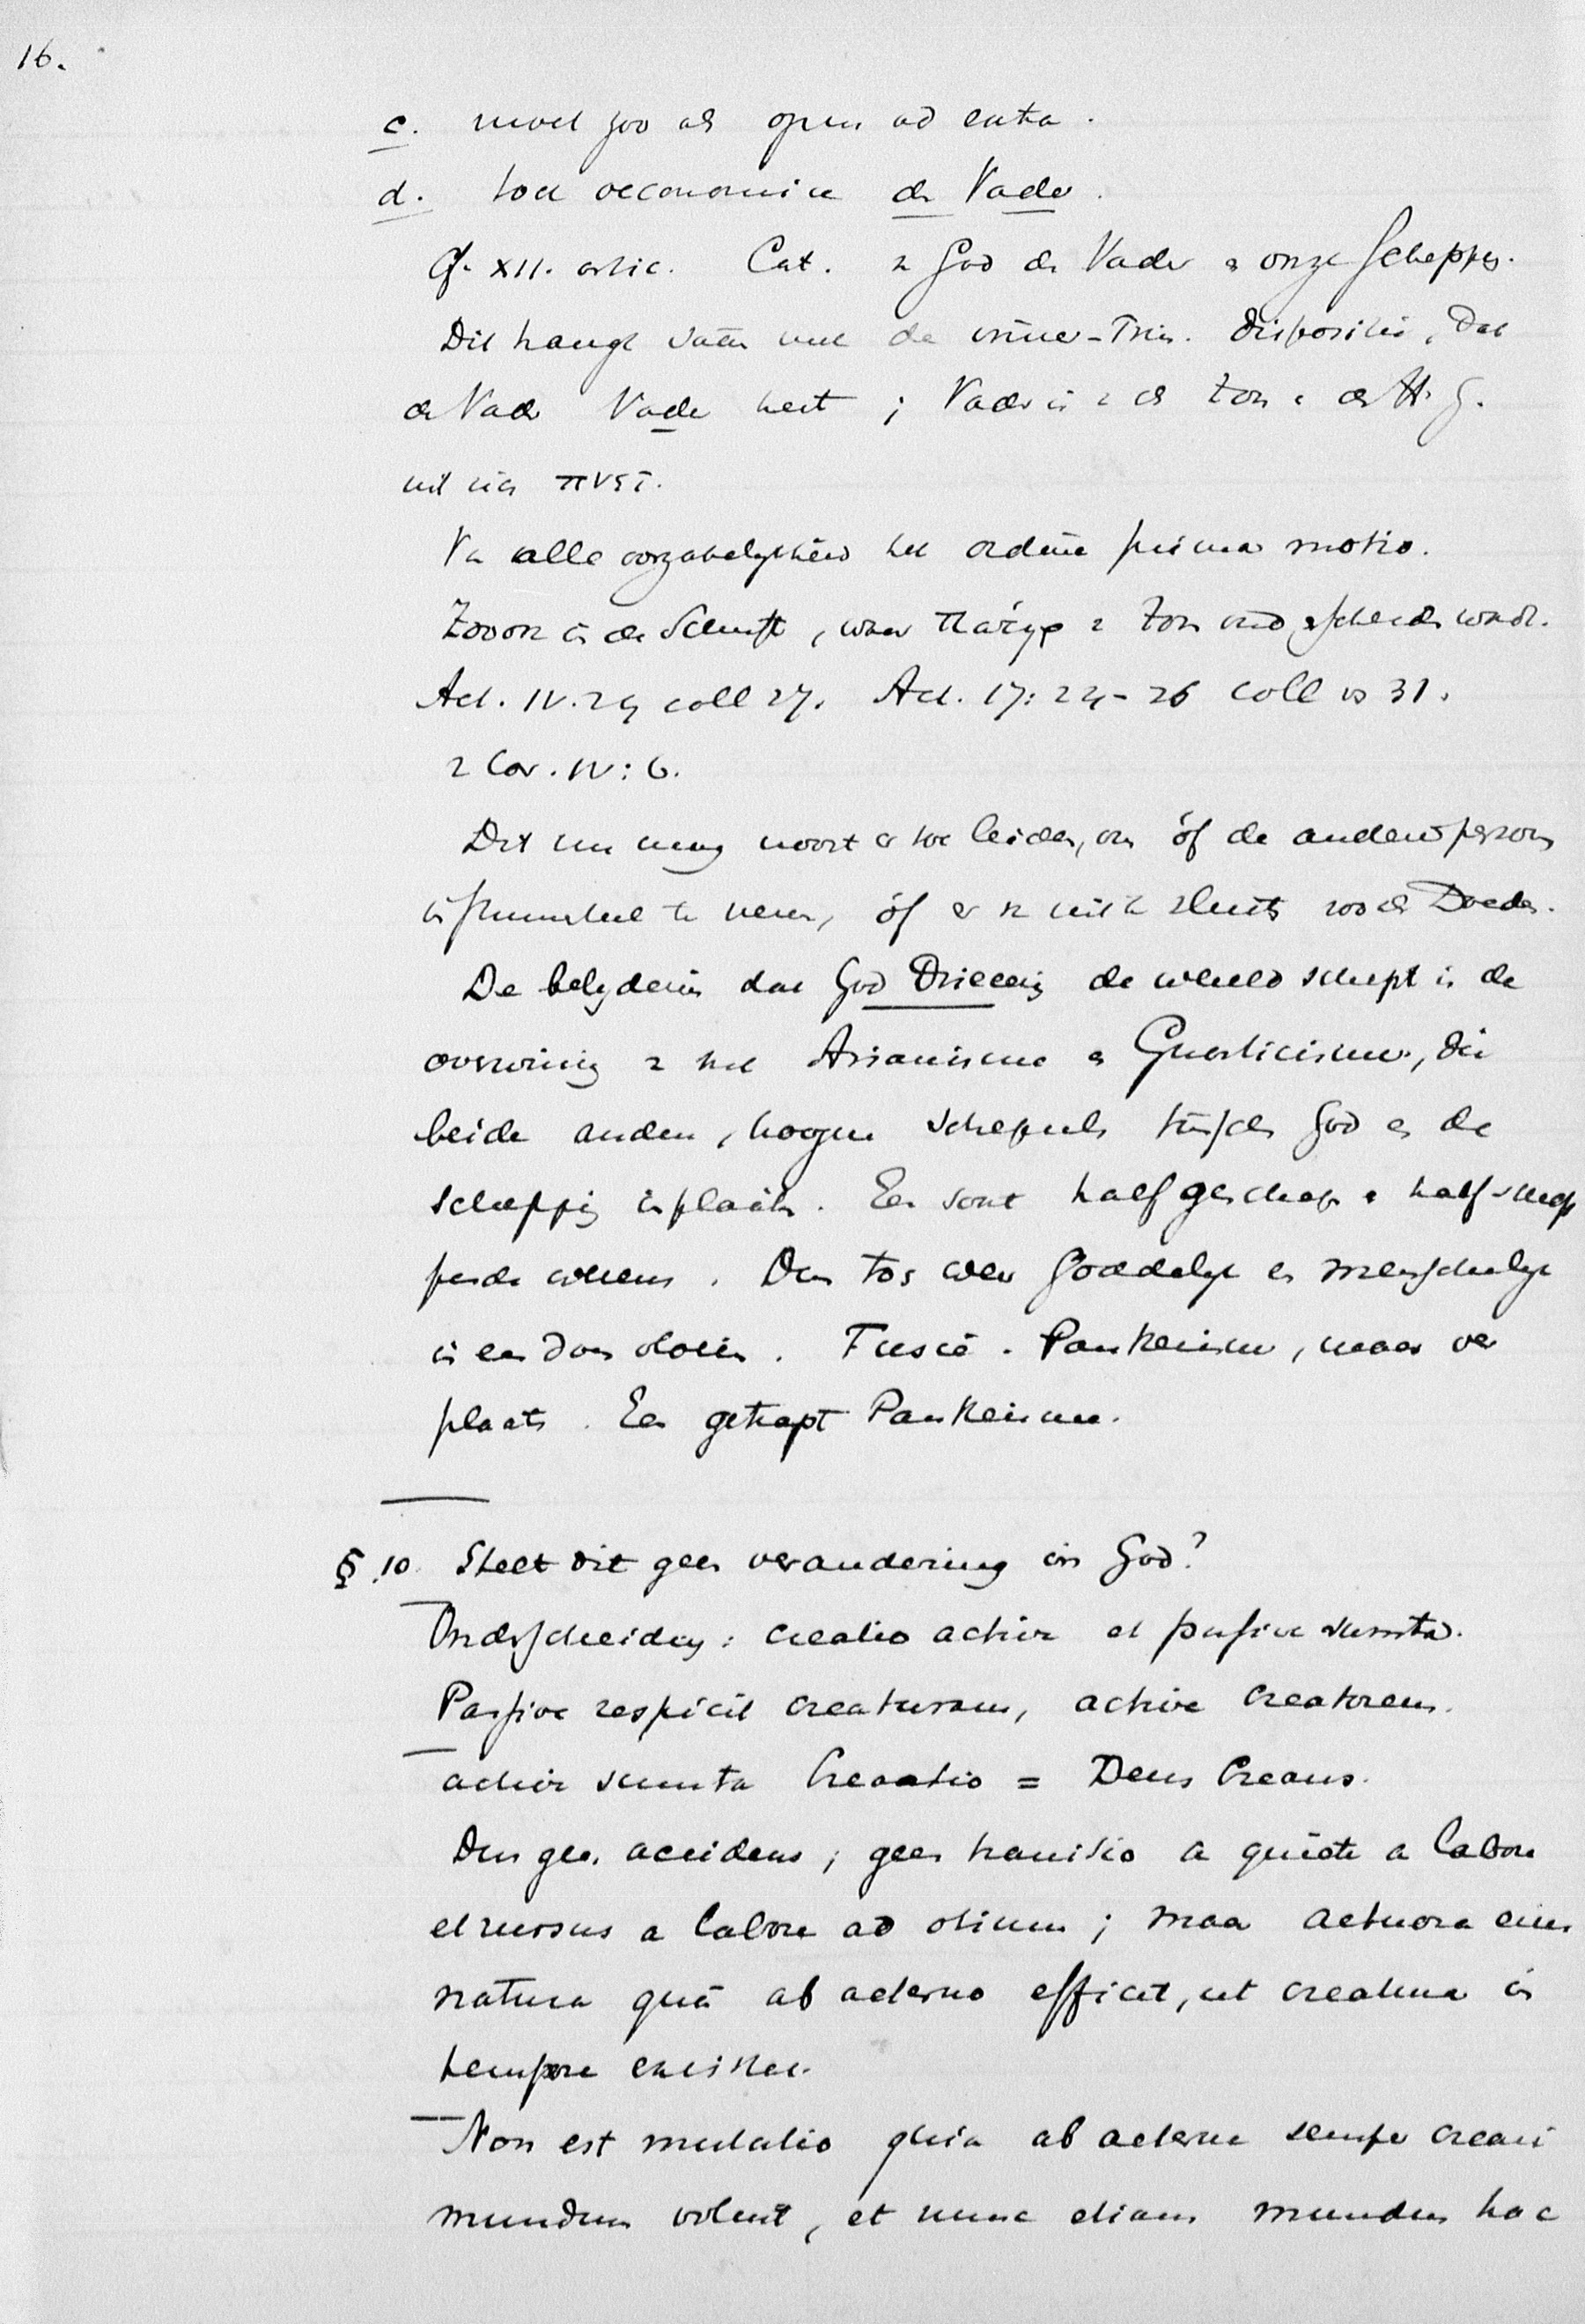 16.
c. moet zoo als opus ad extra.
d. toch oeconomice de Vader.
Cf. XII. artic. Cat. v God de Vader e onze Schepper.
Dit hangt saam met de intra-Trin. dispositie, dat
de Vader Vader heet ; Vader is v de Zoon e de H. G.
uit één
Va alle oorzakelykheid het ordine prima motio.
Zoo ook in de Schrift, waar πατήρ v Zoon onderscheiden wordt.
Act. IV. 24 coll 27. Act. 17: 24-26 coll vs 31.
2 Cor. IV: 6.
Dit nu mag nooit er toe leiden, om óf de anderen persoon
óf er v uit te sluiten zoo als Doedes.
De belydenis dat God Drieeenig de wereld schept is de
overwinning v het Arianisme e Gnosticisme, die
beide andere, hoogere schepsels tusschen God en de
schepping inplaatsen. Een soort half geschapen e half-schep
pende wezens. Dus tos wer Goddelyk en menschelyk
in een doen vloeien. Fusie. Pantheisme, maar ver
plaatst. Een getrapt Pantheisme.
§ 10. Stelt dit geen verandering in God?
Onderscheiden: creatio active et passive sumta.
Passive respicit creaturam, active Creatorem.
active sumta Creatio = Deus Creans.
Dus geen accidens ; geen transitio a quiete a labore
et rursus a labore ad otium ; maar actuosa eius
natura quâ ab aeterno efficit, ut creatura in
tempore existat.
Non est mutatio quia ab aeterno semper creari
mundum voluit, et nunc etiam mundum hac